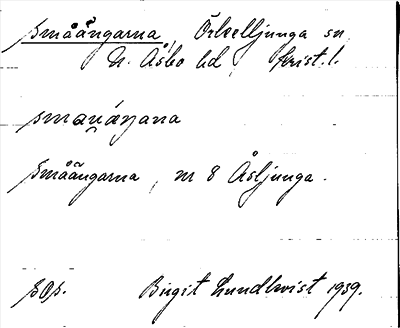 Småängarna, Örkelljunga sn
N. Åsbo hd, Krist. l.
småängarna, nr 8 Åsljunga.
Birgit Lundkvist 1939.